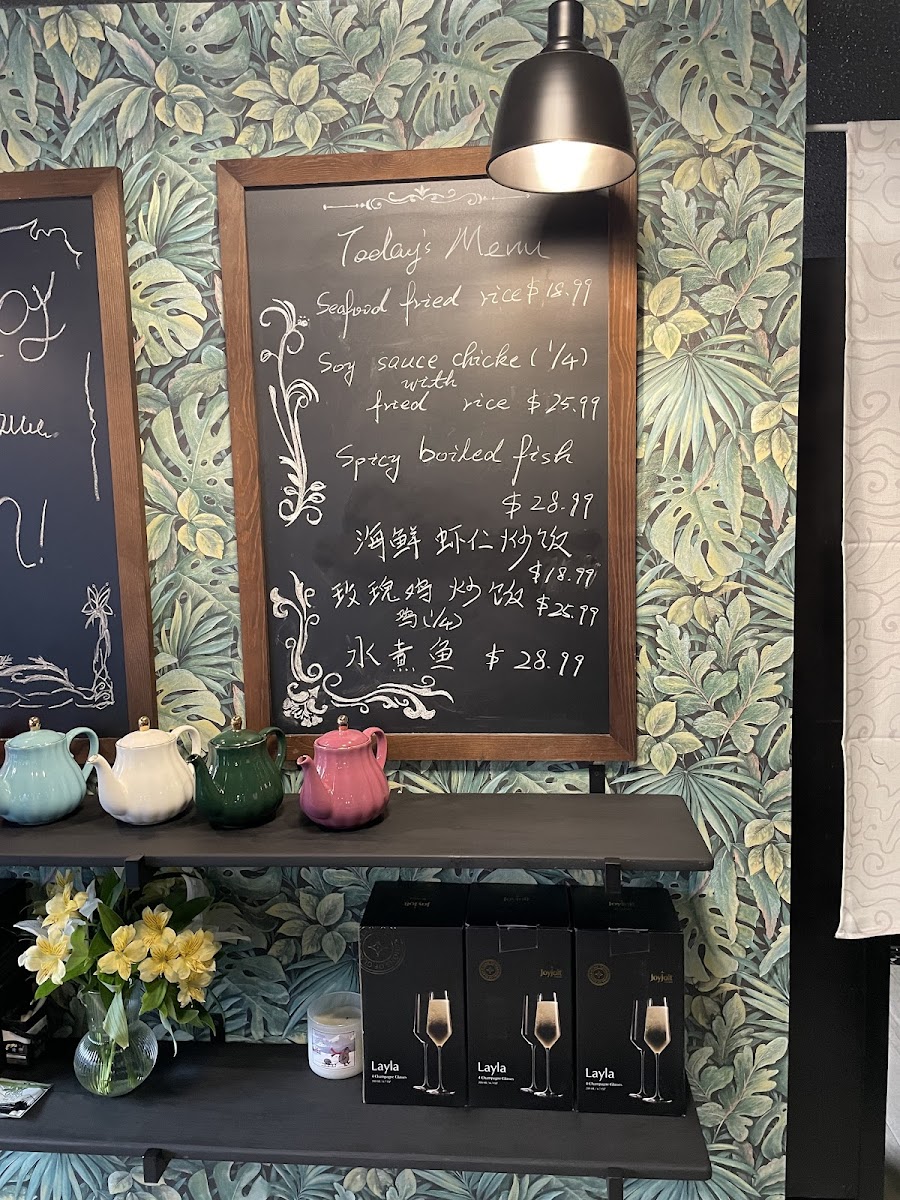 Today's Menu
Seafood fried rice $18.99
Soy sauce chicke (1/4)
with
fried rice $25.99
Spicy boiled fish
$28.99
海鲜虾仁炒饭
$18.99
玫瑰鸡炒饭 $25.99
鸡(1/4)
水煮鱼 $28.99
Joyjolt
Joyjolt
Layla
4 Champagne Glasses
Layla
4 Champagne Glasses
Layla
4 Champagne Glasses